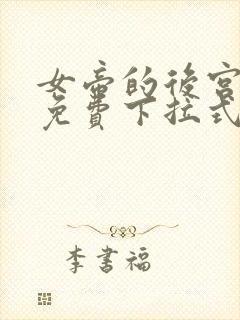 女帝的後宮
免費下拉式
李書福